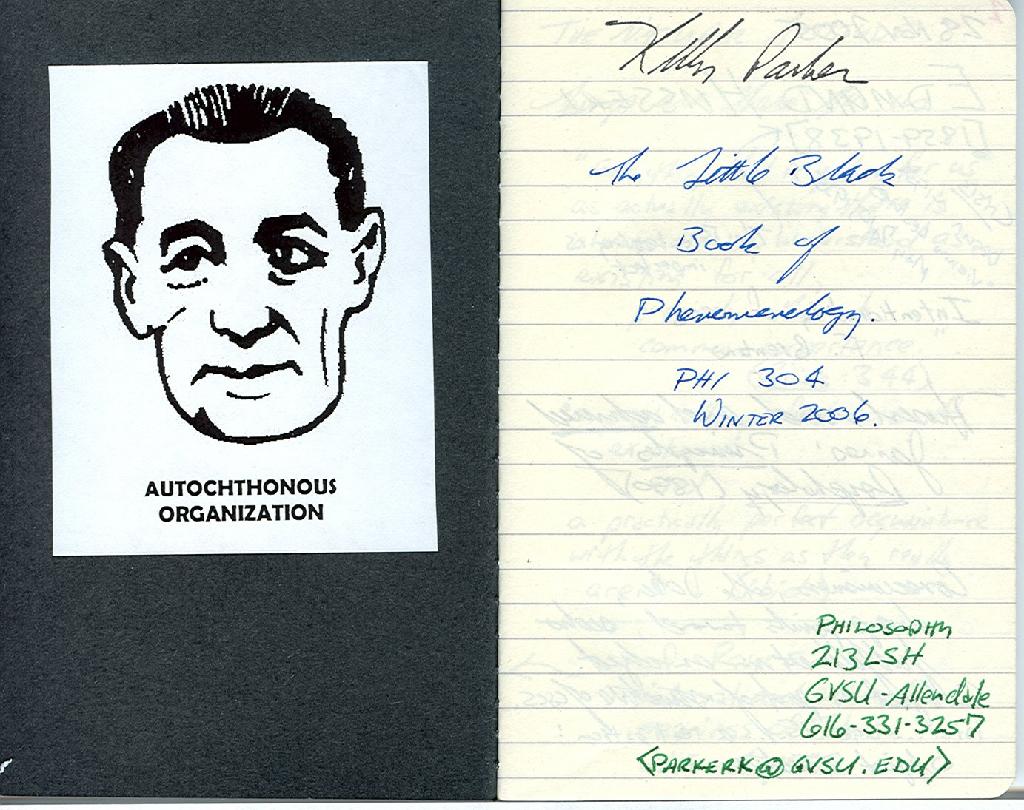 AUTOCHTHONOUS
ORGANIZATION
Kelly Parker
The Little Black
Book of
Phenomenology.
PHI 304
WINTER 2006.
PHILOSOPHY
213 LSH
GVSU-Allendale
616-331-3257
<PARKERK@GVSU.EDU>